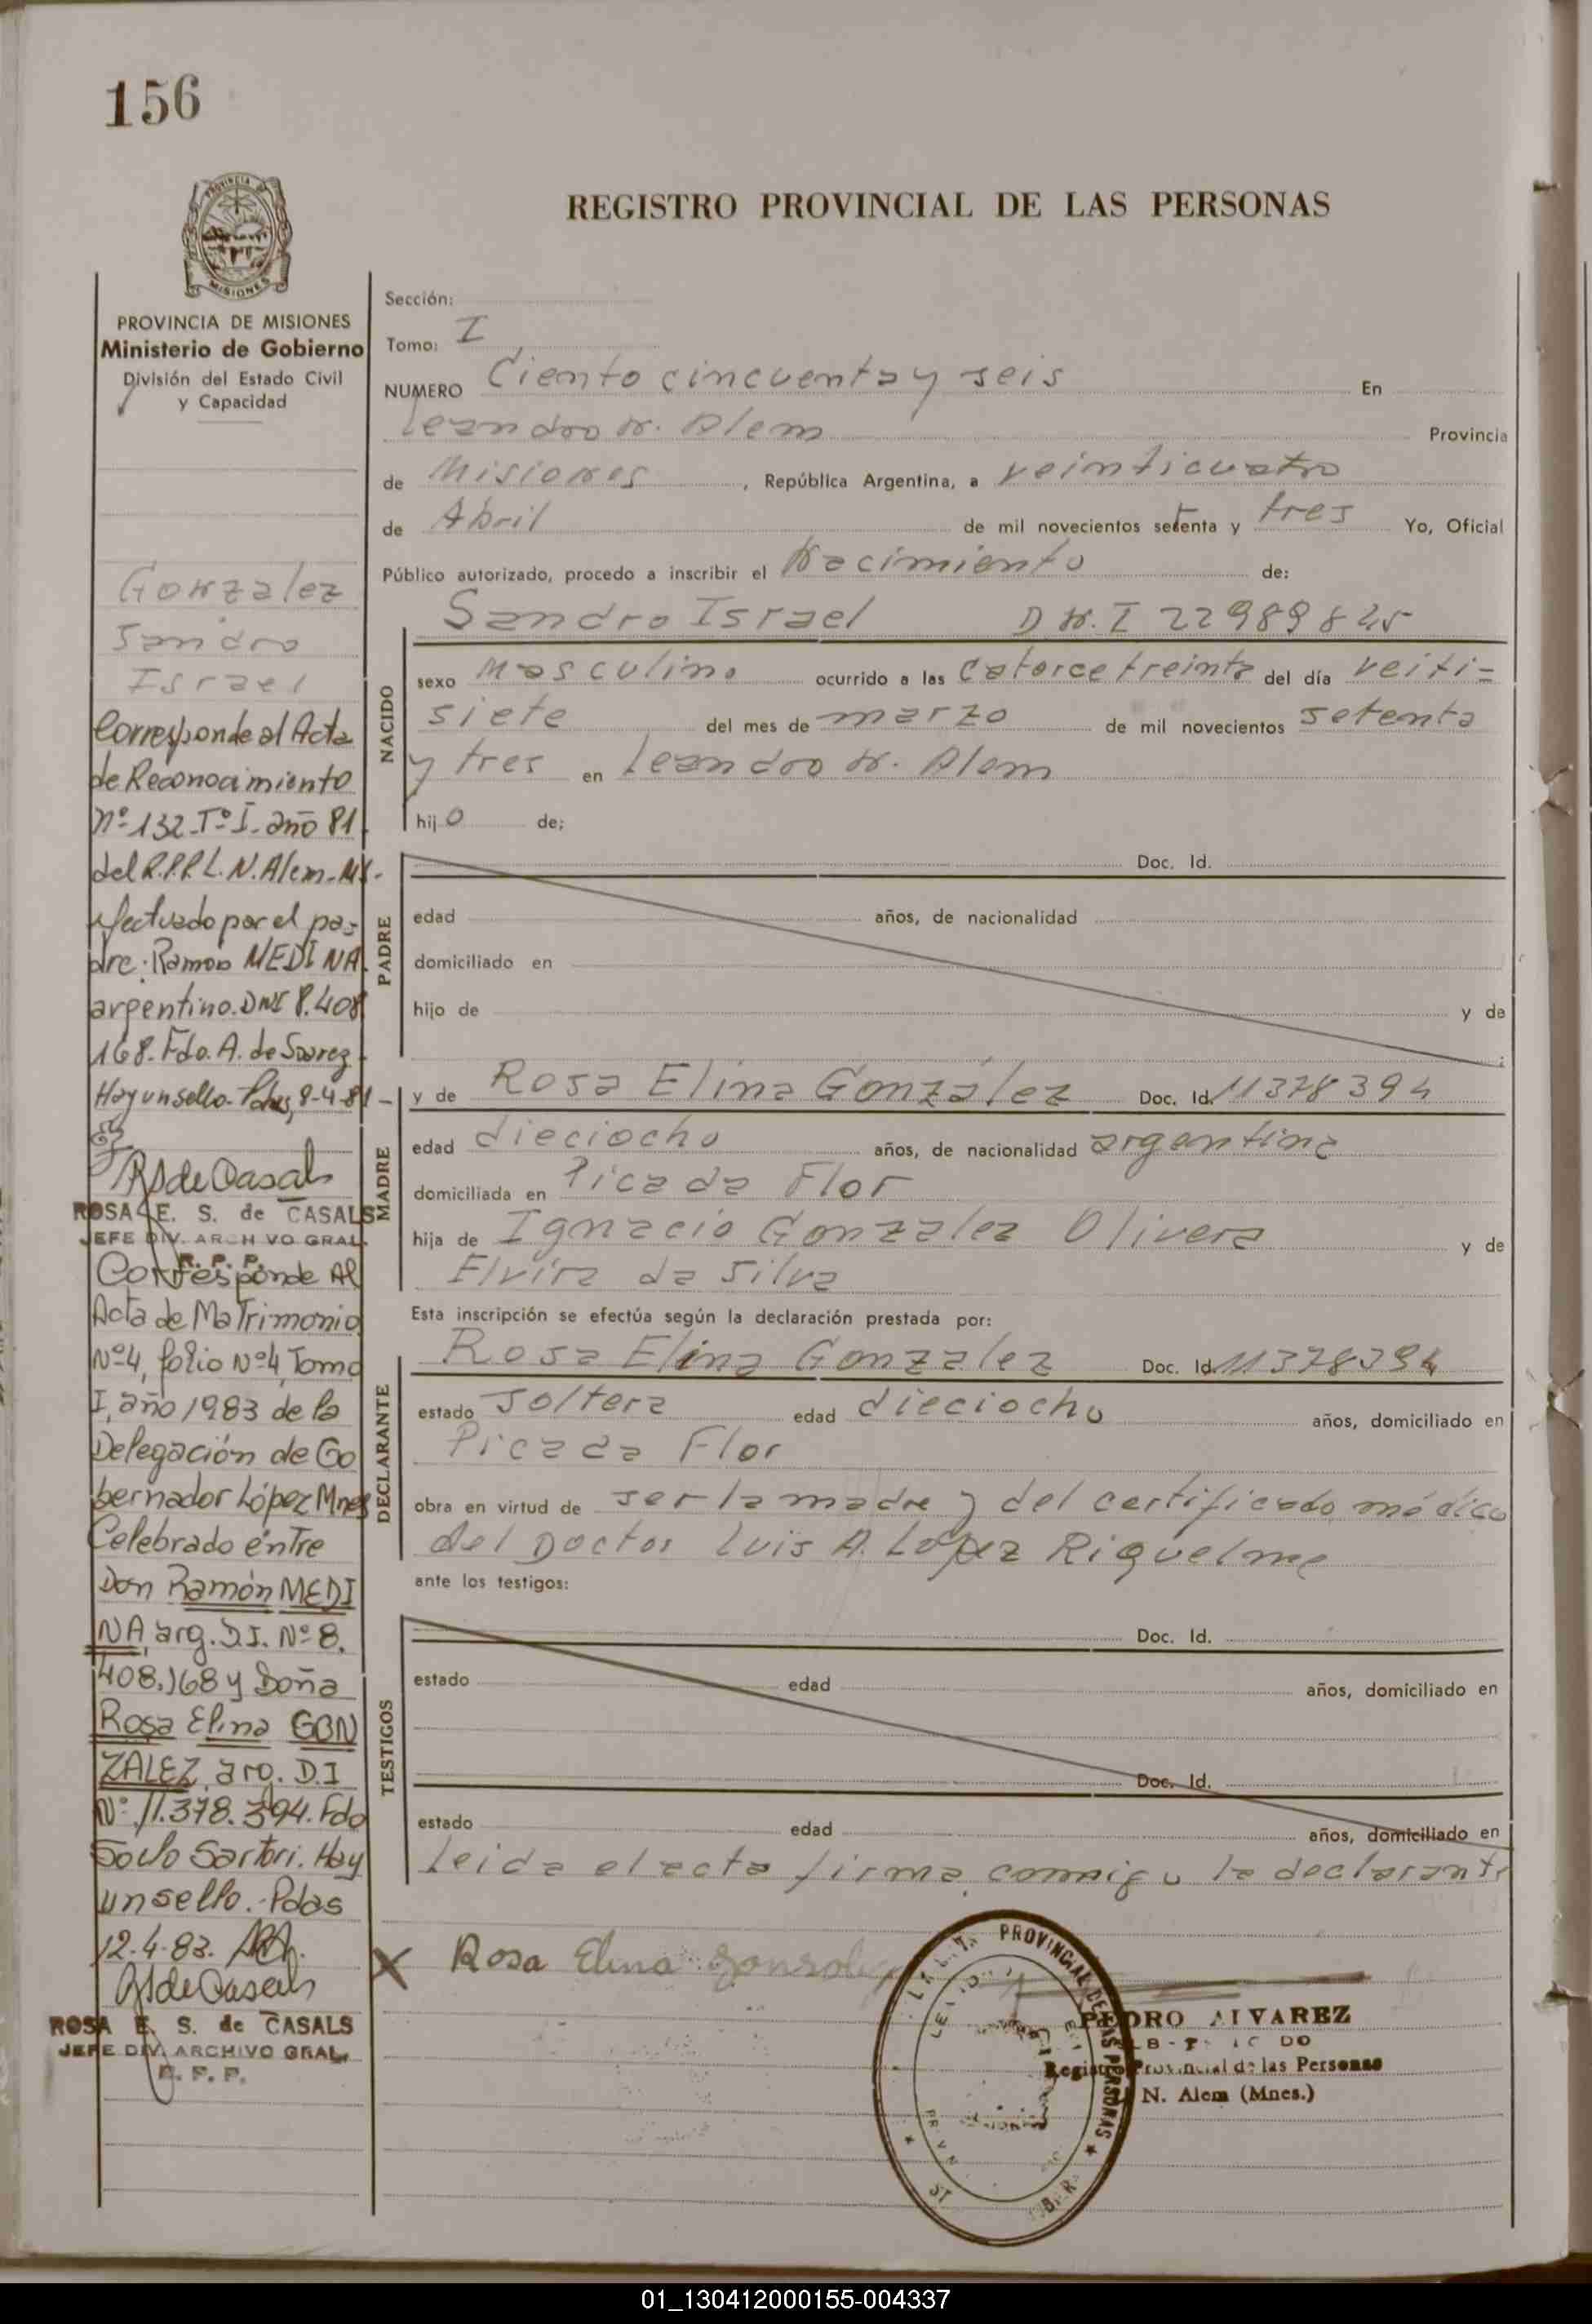 156
PROVINCIA DE
MISIONES
REGISTRO PROVINCIAL DE LAS PERSONAS
PROVINCIA DE MISIONES
Ministerio de Gobierno
División del Estado Civil
y Capacidad
Gonzalez
Sandro
Israel
Corresponde al Acta
de Reconocimiento
Nº 132-Tº I-año 81
del R.P.P. L.N. Alem-Ms-
efectuado por el pa-
dre: Ramon MEDINA
argentino. DNI 8.408
168. Fdo. A. de Soarez
Hay un sello- Pdas, 8-4-81-
RSdeCasals
ROSA E. S. de CASALS
JEFE DIV. ARCHIVO GRAL.
R. P. P.
Corresponde Al
Acta de Matrimonio
Nº4, folio Nº4, Tomo
I, año 1983 de la
Delegación de Go
bernador López Mnes
Celebrado entre
Don Ramón MEDI
NA, arg. D.I. Nº 8.
408.168 y Doña
Rosa Elina GON
ZALEZ, arg. D.I
Nº 11.378.394. Fdo
Sartori. Hay
un sello.- Pdas
12.4.83.
RSdeCasals
ROSA E. S. de CASALS
JEFE DIV. ARCHIVO GRAL.
R. P. P.
Sección:
Tomo: I
NUMERO Ciento cincuenta y seis En
Leandro N. Alem Provincia
de Misiones, República Argentina, a veinticuatro
de Abril de mil novecientos setenta y tres Yo, Oficial
Público autorizado, procedo a inscribir el Nacimiento de:
NACIDO
Sandro Israel D N. I 22989845
sexo Masculino ocurrido a las catorce treinta del día veiti=
siete del mes de marzo de mil novecientos setenta
y tres en Leandro N. Alem
hijo de:
PADRE
Doc. Id.
edad años, de nacionalidad
domiciliado en
hijo de y de
MADRE
y de Rosa Elina González Doc. Id. 11378394
edad dieciocho años, de nacionalidad argentina
domiciliada en Picada Flor
hija de Ignacio Gonzalez Olivera y de
Elvira da Silva
Esta inscripción se efectúa según la declaración prestada por:
DECLARANTE
Rosa Elina Gonzalez Doc. Id. 11378394
estado Soltera edad dieciocho años, domiciliado en
Picada Flor
obra en virtud de ser la madre y del certificado médico
del Doctor Luis A. López Riquelme
ante los testigos:
TESTIGOS
Doc. Id.
estado edad años, domiciliado en
Doc. Id.
estado edad años, domiciliado en
Leida el acta firma conmigo la declarante
X Rosa Elina Gonzalez
PROVINCIAL DE LAS PERSONAS
PEDRO ALVAREZ
Registro Provincial de las Personas
N. Alem (Mnes.)
01_130412000155-004337